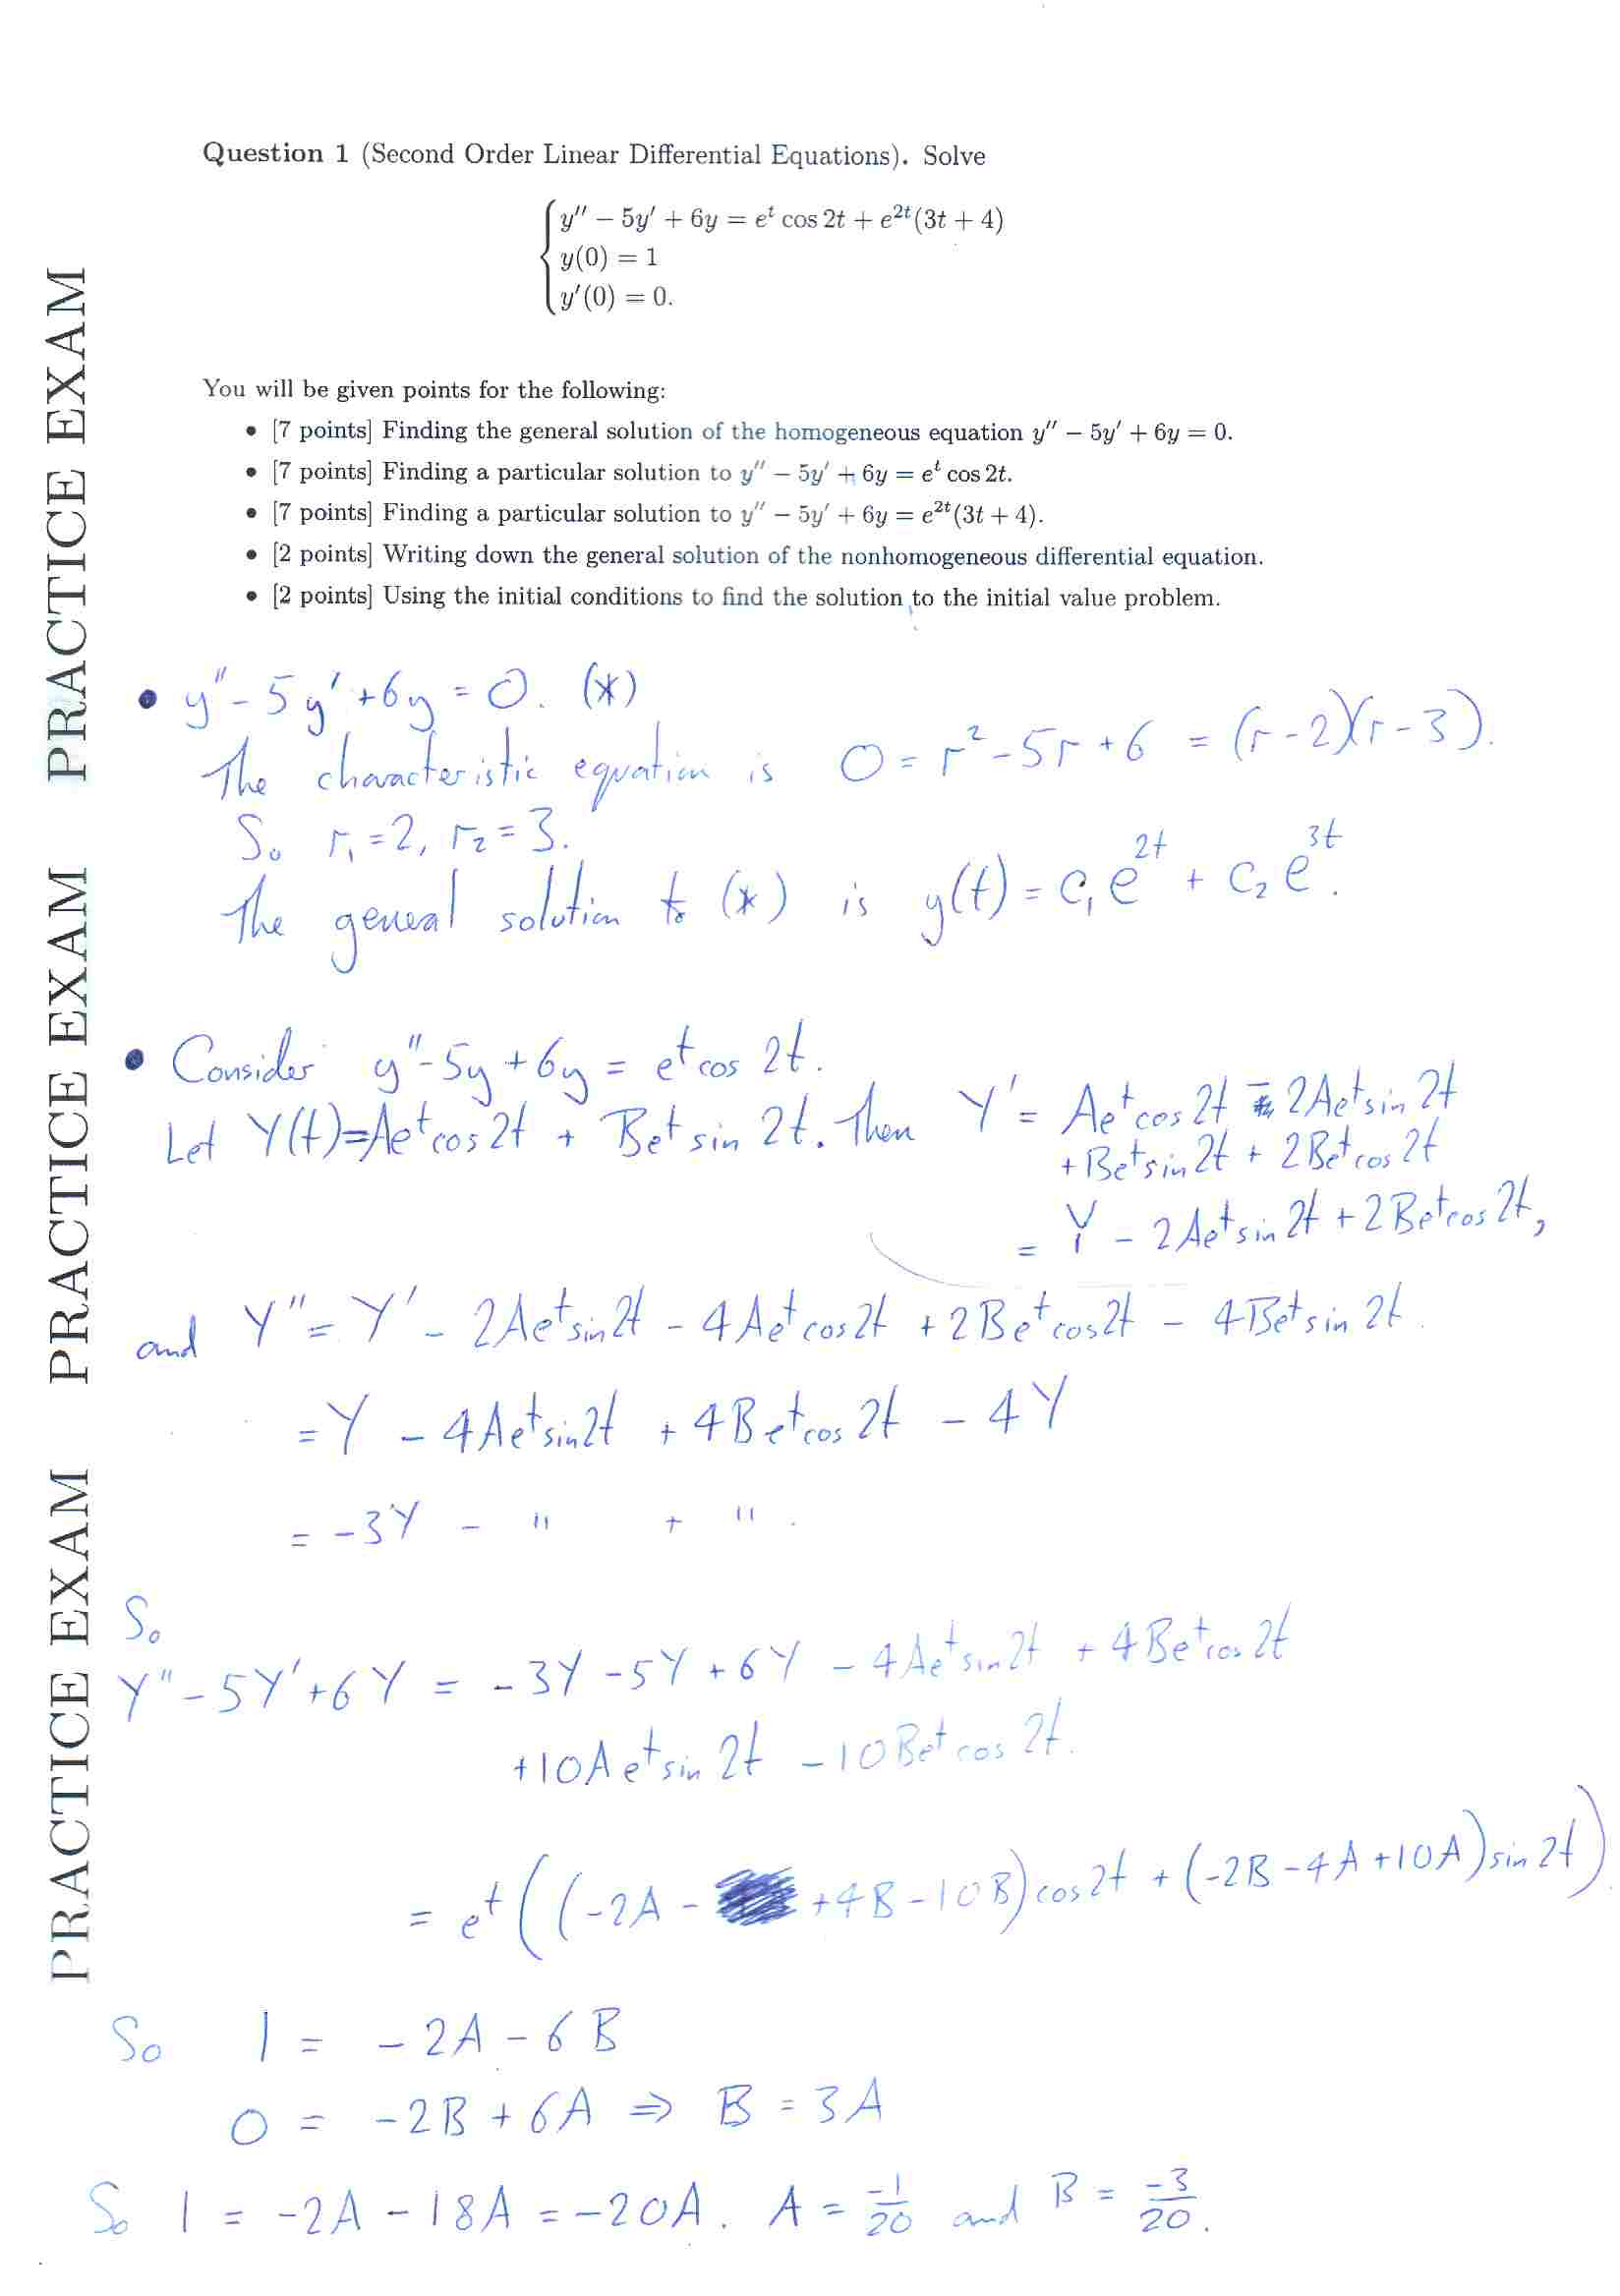 Question 1 (Second Order Linear Differential Equations). Solve
y″ − 5y′ + 6y = eᵗ cos 2t + e²ᵗ(3t + 4)
y(0) = 1
y′(0) = 0.
You will be given points for the following:
• [7 points] Finding the general solution of the homogeneous equation y″ − 5y′ + 6y = 0.
• [7 points] Finding a particular solution to y″ − 5y′ + 6y = eᵗ cos 2t.
• [7 points] Finding a particular solution to y″ − 5y′ + 6y = e²ᵗ(3t + 4).
• [2 points] Writing down the general solution of the nonhomogeneous differential equation.
• [2 points] Using the initial conditions to find the solution to the initial value problem.
• y″ − 5y′ + 6y = 0. (*)
The characteristic equation is 0 = r² − 5r + 6 = (r − 2)(r − 3).
So r₁ = 2, r₂ = 3.
The general solution to (*) is y(t) = c₁e²ᵗ + c₂e³ᵗ.
• Consider y″ − 5y + 6y = eᵗ cos 2t.
Let Y(t) = Aeᵗ cos 2t + Beᵗ sin 2t. Then Y′ = Aeᵗ cos 2t − 2Aeᵗ sin 2t
+ Beᵗ sin 2t + 2Beᵗ cos 2t
= Y − 2Aeᵗ sin 2t + 2Beᵗ cos 2t,
and Y″ = Y′ − 2Aeᵗ sin 2t − 4Aeᵗ cos 2t + 2Beᵗ cos 2t − 4Beᵗ sin 2t.
= Y − 4Aeᵗ sin 2t + 4Beᵗ cos 2t − 4Y
= −3Y − " + " .
So
Y″ − 5Y′ + 6Y = −3Y − 5Y + 6Y − 4Aeᵗ sin 2t + 4Beᵗ cos 2t
+ 10Aeᵗ sin 2t − 10Beᵗ cos 2t.
= eᵗ((−2A − + 4B − 10B) cos 2t + (−2B − 4A + 10A) sin 2t).
So 1 = −2A − 6B
0 = −2B + 6A ⇒ B = 3A
So 1 = −2A − 18A = −20A. A = −1/20 and B = −3/20.
PRACTICE EXAM PRACTICE EXAM PRACTICE EXAM